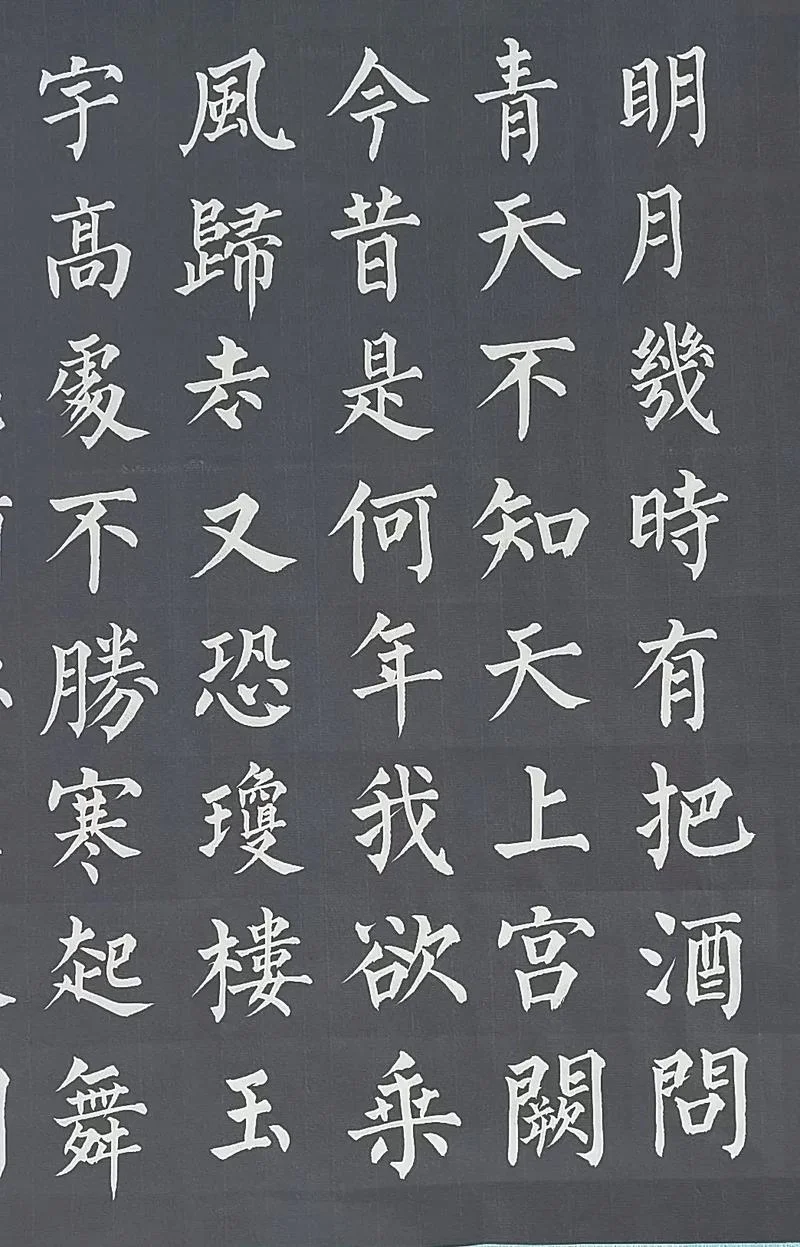 明月幾時有把酒問
青天不知天上宮闕
今昔是何年我欲乗
風歸去又恐瓊樓玉
宇高處不勝寒起舞